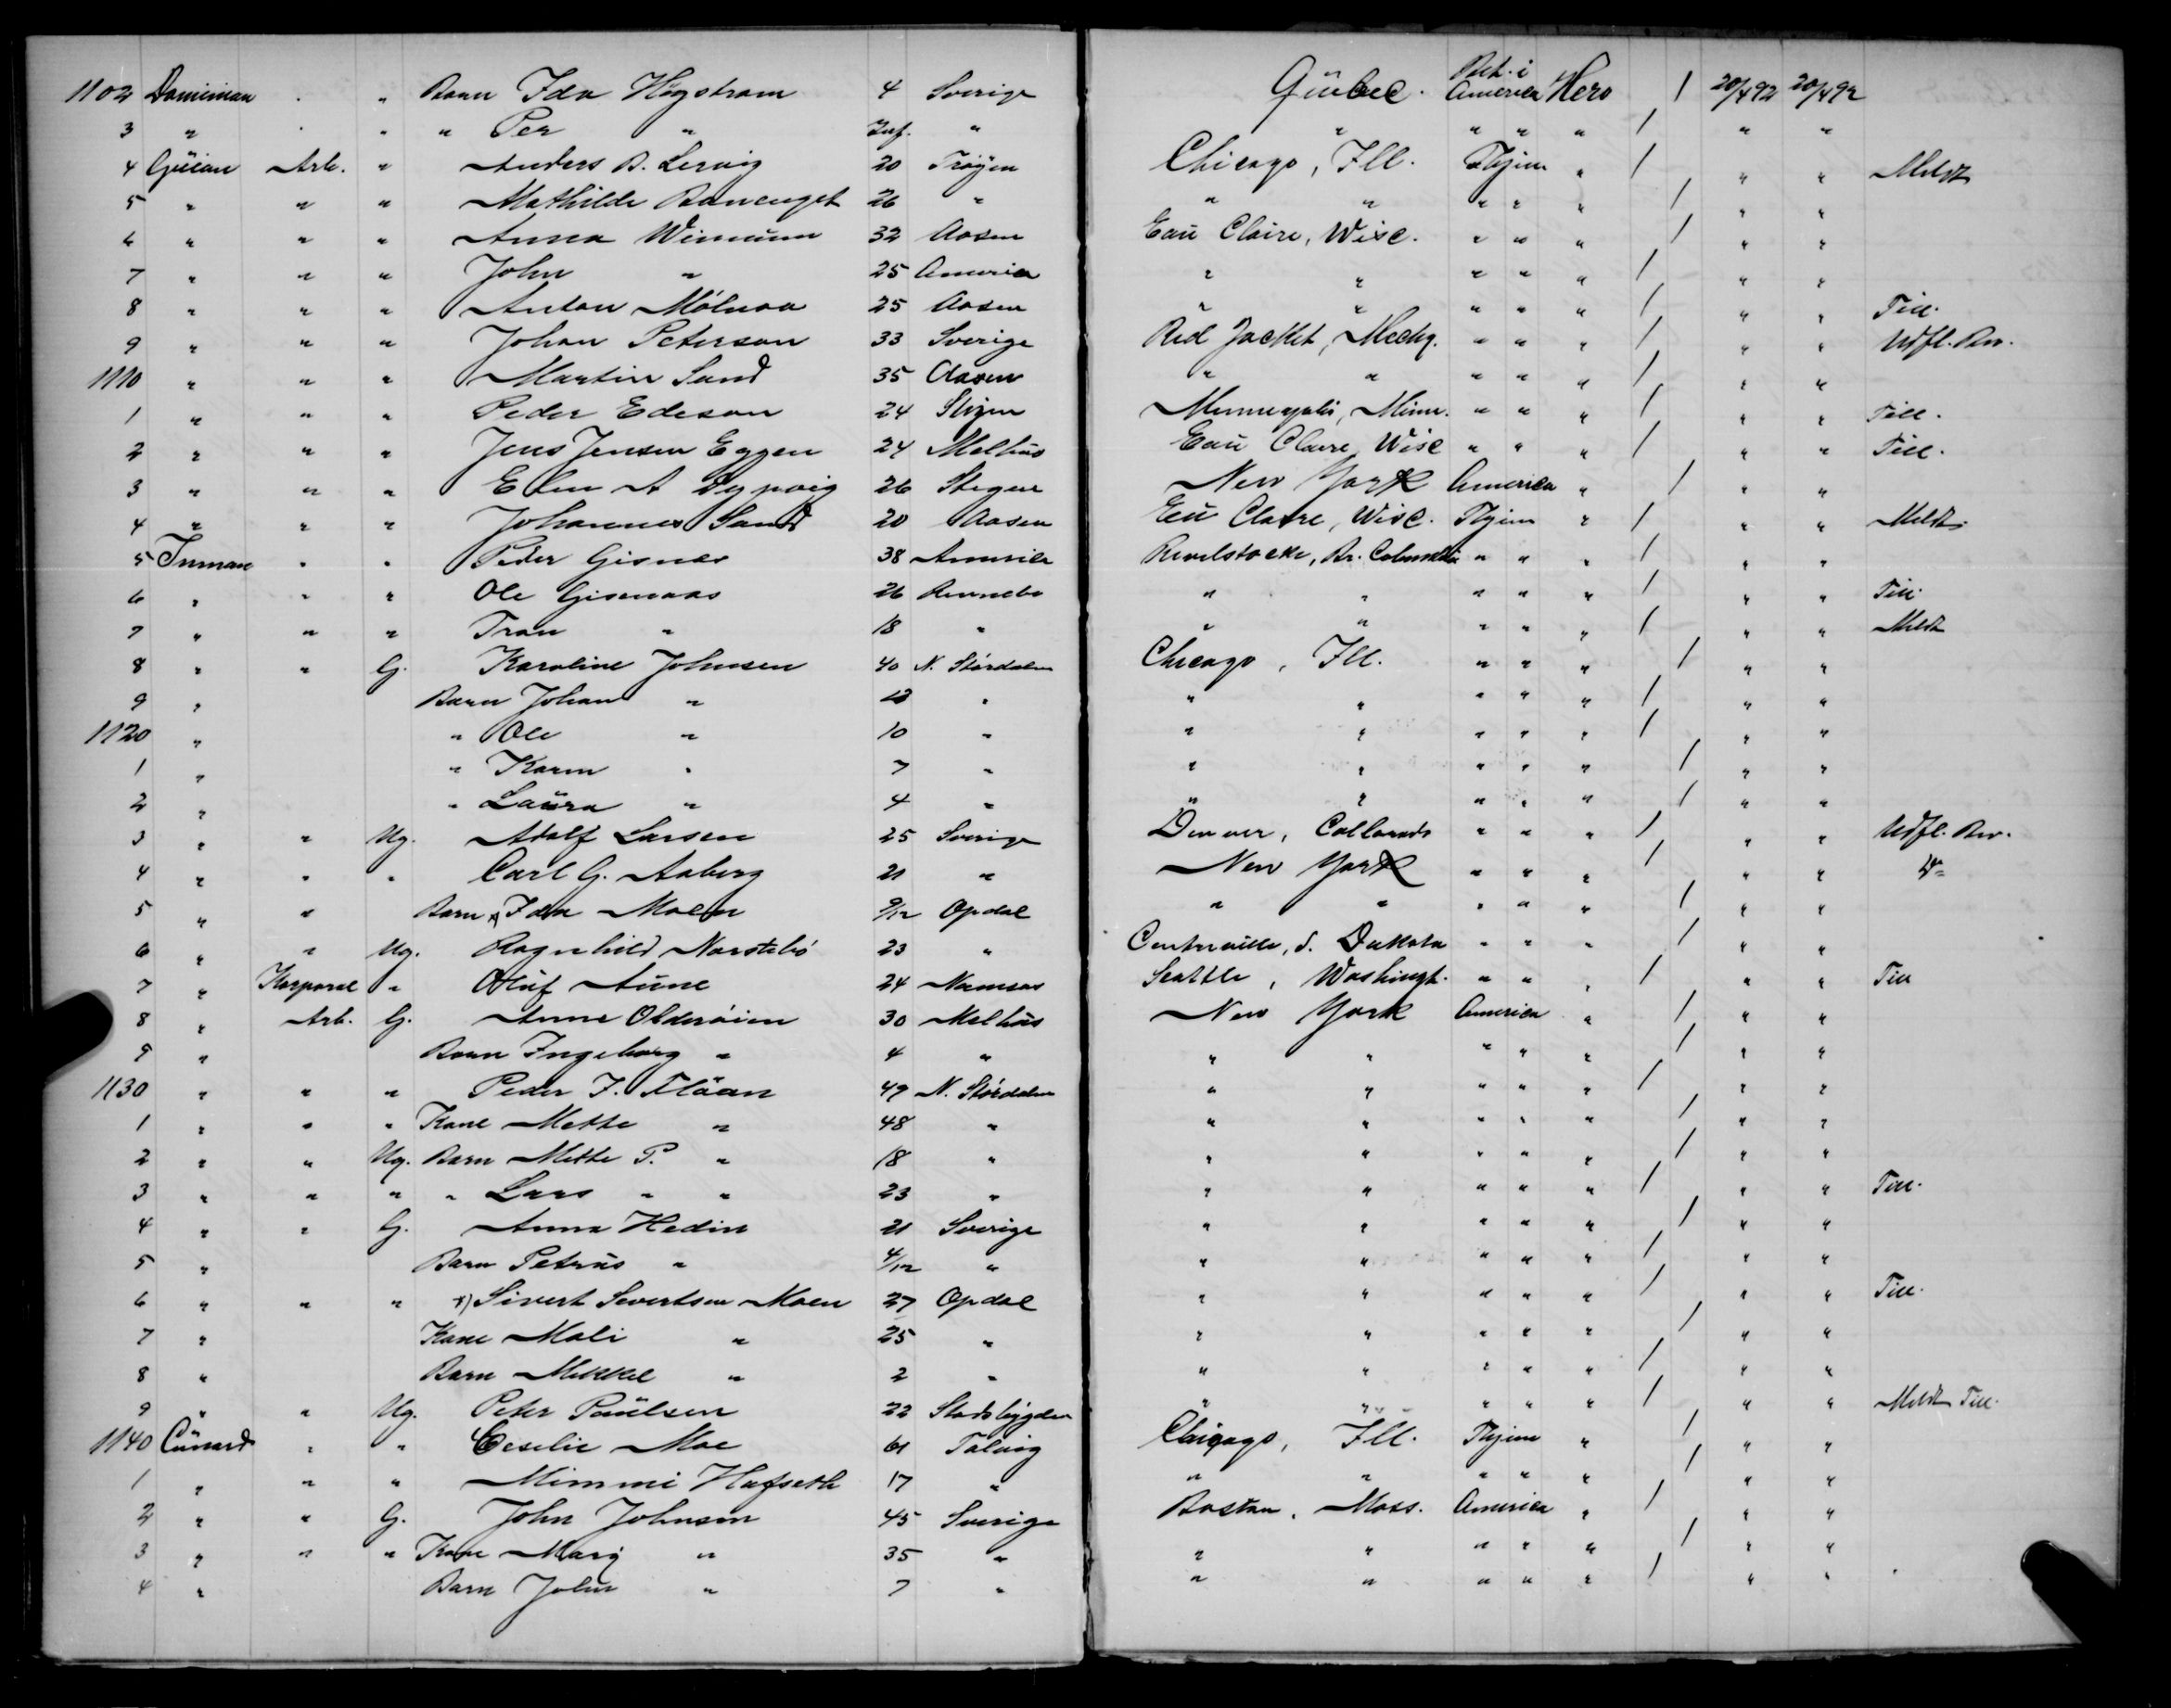 1102 Dominion " Barn Ida Högstrom 4 Sverige Quebec. Bet. i America Hero 1 20/4 92 20/4 92
3 " " " Per " Inf. " " " " " 1 " "
4 Guion Arb. " Anders B. Lervig 20 Trøjen Chicago, Ill. Thjem " 1 " " Meldt
5 " " " Mathilde 26 " " " " " " 1 " "
6 " " " Anna 32 Aasen Eau Claire, Wisc. " " " 1 " "
7 " " " John " 25 America " " " " " 1 " "
8 " " " Anton Mólnaa 25 Aasen " " " " " 1 " " Till.
9 " " " Johan Peterson 33 Sverige Red Jacket, Mechg. " " " 1 " " Udfl. Bev.
1110 " " " Martin Sand 35 Aasen " " " " " 1 " "
1 " " " Peder Edeson 24 Minneapolis, Minn. " " " 1 " " Till.
2 " " " Jens Jensen Eggen 24 Melhus Eau Claire Wisc " " " 1 " " Till.
3 " " " Elen A Dypvig 26 New York America " 1 " "
4 " " " Johannes Sand 20 Aasen Eau Claire, Wisc. Thjem " 1 " " Meldt
5 Inman " " Peder Gisnas 38 America Revelstocke, Br. Columbia " " " 1 " "
6 " " " Ole Gisenaas 26 Rennebo " " " " " 1 " " Till
7 " " " Tron " 18 " " " " " " 1 " " Meldt
8 " " G. Karoline Johnsen 40 N. Stórdalen Chicago, Ill. " " " 1 " "
9 " Barn Johan " " " " " " " 1 " "
1120 " " Ole " 10 " " " " " " 1 " "
1 " " Karen " 7 " " " " " " 1 " "
2 " " Laura " 4 " " " " " " 1 " "
3 " " Ug. Adolf Larsen 25 Sverige Denver, Collorado " " " 1 " " Udfl. Bev.
4 " " " Carl G. Aaberg 21 " New York " " " 1 " "
5 " " Barn x) Ida Moen 9/12 Opdal " " " " " 1 " "
6 " " Ug. Ragnhild Norstebó 23 " Centerville, S. Dakota " " " 1 " "
7 " Korporal " Oluf Aune 24 Namsos Seattle, Washingt. " " " 1 " " Till
8 " Arb. G. Anne Olderóien 30 Melhus New York America " 1 " "
9 " Barn Ingeborg " 4 " " " " " " 1 " "
1130 " " " Peder J. Flåan 49 N. Stórdalen " " " " " 1 " "
1 " " " Kone Mette " 48 " " " " " " 1 " "
2 " " Ug. Barn Mette P. " 18 " " " " " " 1 " "
3 " " " " Lars " " 23 " " " " " " 1 " " Till.
4 " " G. Anna Hedin 21 Sverige " " " " " 1 " "
5 " Barn Petrus " 4/12 " " " " " " 1 " "
6 " " " x) Sivert Sivertsen Moen 27 Opdal " " " " " 1 " " Till.
7 " Kone Mali " 25 " " " " " " 1 " "
8 " Barn Mikkel " 2 " " " " " " 1 " "
9 " " Ug. Peter Paulsen 22 Stadsbygden " " " " " 1 " " Meldt Till.
1140 Cunard " " Cecilie Moe 61 Talvig Chicago, Ill. Thjem " 1 " "
1 " " " Mimmi Hafseth 17 " " " " " " 1 " "
2 " " G. John Johnsen 45 Sverige Boston, Mass. America " 1 " "
3 " " " Kone Marg " 35 " " " " " " 1 " "
4 " Barn John " 7 " " " " " " 1 " "